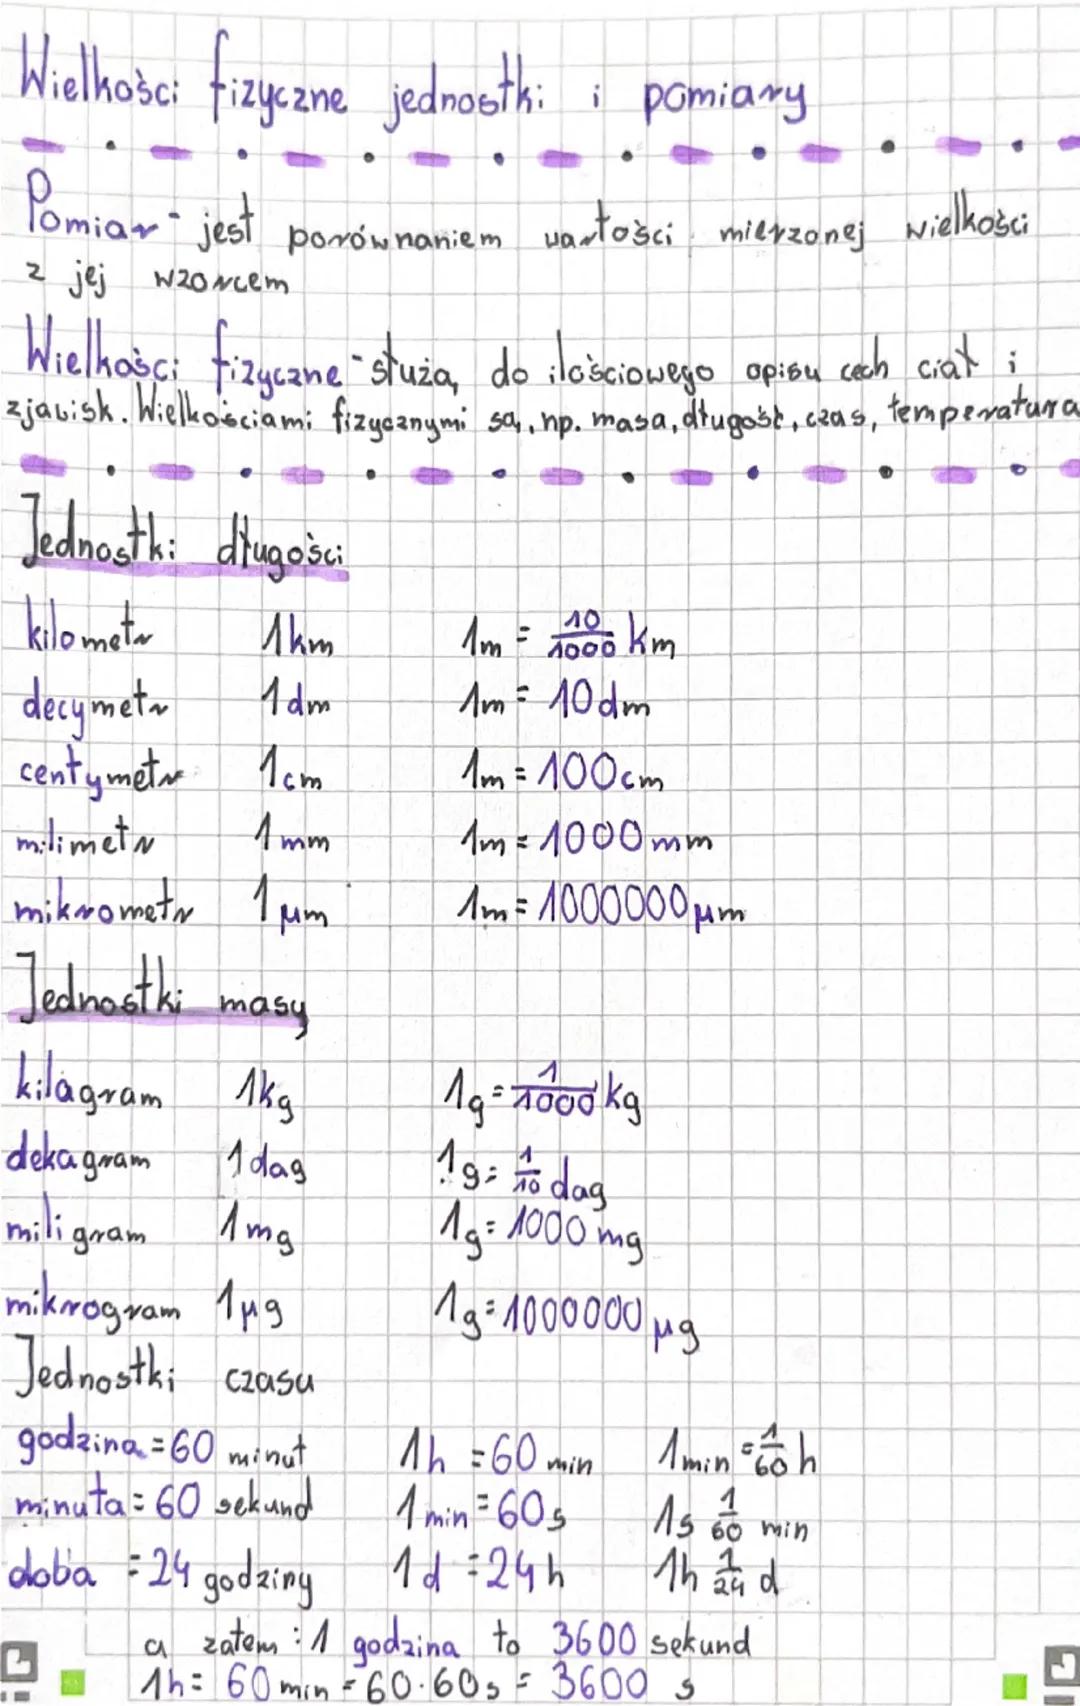 Wielkości fizyczne jednostki i pomiary
Pomiar - jest porównaniem wartości mierzonej wielkości
z jej wzorcem
Wielkości fizyczne - służą do ilościowego opisu cech ciał i
zjawisk. Wielkościami fizycznymi są, np. masa, długość, czas, temperatura
Jednostki długości
kilometr 1km 1m = 10/1000 km
decymetr 1dm 1m = 10dm
centymetr 1cm 1m = 100cm
milimetr 1mm 1m = 1000mm
mikrometr 1μm 1m = 1000000μm
Jednostki masy
kilogram 1kg 1g = 1/1000 kg
dekagram 1dag 1g = 1/10 dag
miligram 1mg 1g = 1000 mg
mikrogram 1μg 1g = 1000000 μg
Jednostki czasu
godzina = 60 minut 1h = 60 min 1min = 1/60 h
minuta = 60 sekund 1min = 60s 1s 1/60 min
doba = 24 godziny 1d = 24h 1h 1/24 d
a zatem : 1 godzina to 3600 sekund
1h = 60 min = 60·60s = 3600 s